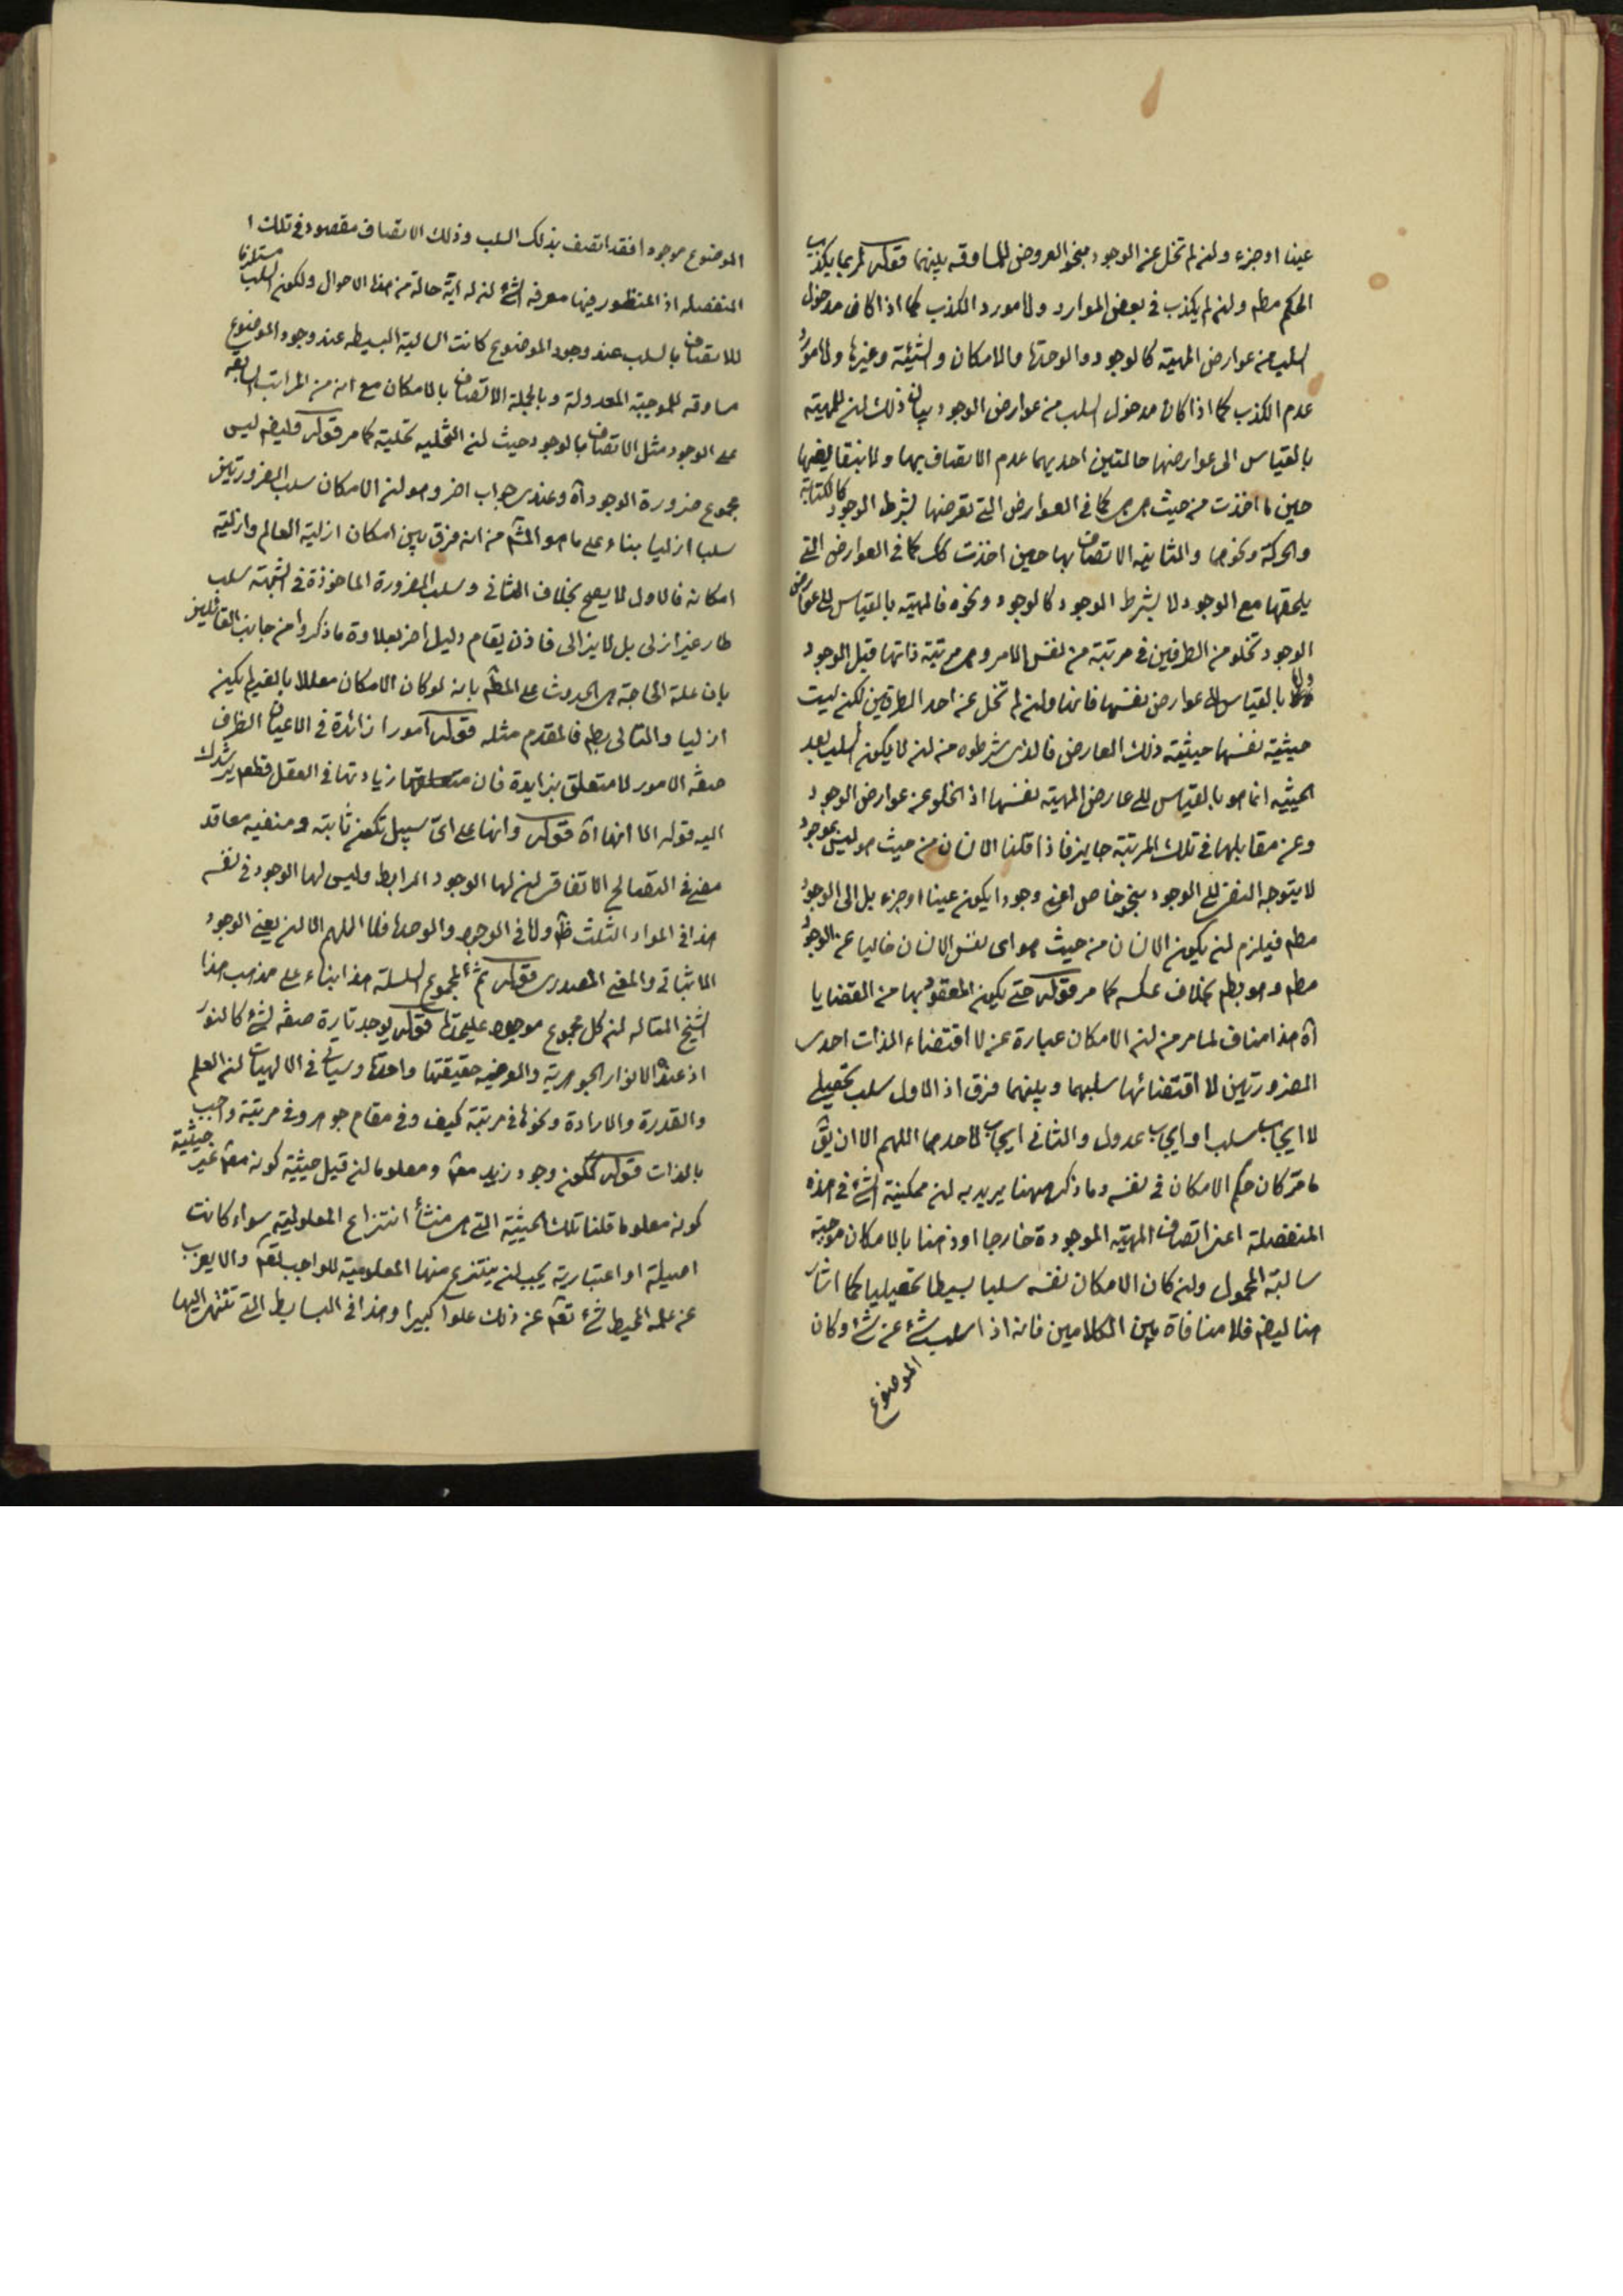 عينا او جزء ولن لم تخل عن الوجود بنحو العروض للمساوقه بينهما قوله لربما يكذب
الحكم مطم ولن لم يكذب فى بعض الموارد والامورد الكذب كما اذا كان مدخول
السلب من عوارض المهية كالوجود والوحدة والامكان والشيئية وغيرها والامورد
عدم الكذب كما اذا كان مدخول السلب من عوارض الوجود بيان ذلك لن للمهية
بالقياس الى عوارضها حالتين احديهما عدم الاتصاف بها ولا بنقايضها
حين ما اخذت من حيث هى هى كما فى العوارض التى تعرضها بشرط الوجود كالكتابة
والحركة ونحوها والثانيه الاتصاف بها حين اخذت كك كما فى العوارض التى
يلحقها مع الوجود لا بشرط الوجود كالوجود ونحوه فالمهية بالقياس الى عوارض
الوجود تخلو من الطرفين فى مرتبة من نفس الامر وهى مرتبة ذاتها قبل الوجود
واما بالقياس الى عوارض نفسها فانها ولن لم تخل عن احد الطرفين لكن ليست
حيثية نفسها حيثية ذلك العارض فالذى شرطوه من لن لا يكون السلب بعد
الحيثيه انما هو بالقياس الى عارض المهية نفسها اذ الخلو عن عوارض الوجود
وعن مقابلها فى تلك المرتبة جايز فاذا قلنا الانسان من حيث هو ليس بموجود
لا يتوجه النفى الى الوجود بنحو خاص اعنى وجودا يكون عينا او جزء بل الى الوجود
مطم فيلزم لن يكون الانسان من حيث هو اى نفس الانسان خاليا عن الوجود
مطم وهو بطم بخلاف عكسه كما مر قوله حتى يكون المعقود بها من القضايا
اه هذا مناف لما مر من لن الامكان عبارة عن لا اقتضاء الذات احدى
الضرورتين لا اقتضائها سلبهما وبينهما فرق اذ الاول سلب تحصيلى
لا ايجاب سلب او ايجاب عدول والثانى ايجاب لاحدهما اللهم الا ان يق
ما مر كان حكم الامكان فى نفسه وما ذكر ههنا يريد به لن ممكنية الشئ فى هذه
المنفصلة اعنى اتصاف المهية الموجودة خارجا او ذهنا بالامكان موجبة
سالبة المحمول ولن كان الامكان نفسه سلبا بسيطا تحصيليا كما اشار
هنا ليضم فلا منافاة بين الكلامين فانه اذا سلب شئ عن شئ وكان
الموضوع
الموضوع موجودا فقد اتصف بذلك السلب وذلك الاتصاف مقصود فى تلك ا
المنفصله اذ المنظور فيها معرفه الشئ لن له اية حالة من هذا الاحوال ولكون السلب مستلزما
للاتصاف بالسلب عند وجود الموضوع كانت السالبة البسيطه عند وجود الموضوع
مساوقه للموجبة المعدولة وبالجملة الاتصاف بالامكان مع انه من المراتب السابقه
على الوجود مثل الاتصاف بالوجود حيث لن التخليه تحلية كما مر قوله فليضم ليس
مجموع ضرورة الوجود اه وعندى جواب اخر وهو لن الامكان سلب الضرورتين
سلبا ازليا بناء على ما هو المشم من انه فرق بين امكان ازلية العالم وازلية
امكانه فالاول لا يصح بخلاف الثانى وسلب الضرورة الماخوذة فى الشبهة سلب
طار غير ازلى بل لا يزالى فاذن يقام دليل اخر بعلاوة ما ذكروا من جانب القائلين
بان علة الحاجة هى الحدوث على المطم بانه لو كان الامكان معللا بالغير لم يكن
ازليا والتالى بطم فالمقدم مثله قوله امورا زائدة فى الاعيان الظرف
صفة الامور لا متعلق بزايدة فان متعلقها زيادتها فى العقل فقط يرشدك
اليه قوله الا انها اه قوله وانها على اى سبيل تكون ثابتة ومنفيه معا قد
معنى فى التصالح الاتفاقى لن لها الوجود الرابط وليس لها الوجود فى نفسه
هذا فى المواد الثلث ظم ولما فى الوجود والوحدة فلا اللهم الا لن يعنى الوجود
الاثباتى والمعنى المصدرى قوله ثم مجموع السلسلة هذا بناء على مذهب هذا
الشيخ المتاله لن كل مجموع موجود عليحدة قوله يوجد تارة صفة لشئ كالنور
اذ عنده الانوار الجوهرية والعرضيه حقيقتها واحدة وسياتى فى الالهيات لن العلم
والقدرة والارادة ونحوها فى مرتبة كيف وفى مقام جوهر وفى مرتبة واجب
بالذات قوله ككون وجود زيد معلم ومعلوما لن قيل حيثية كونه معلم غير حيثية
كونه معلوما قلنا تلك الحيثية التى هى منشأ انتزاع المعلولية سواء كانت
اصيلة او اعتبارية يجب لن ينتزع منها المعلومية للواجب تعم والا يعزب
عن علمه المحيط شئ تعم عن ذلك علوا كبيرا وهذا فى البسايط التى تنتهى اليها